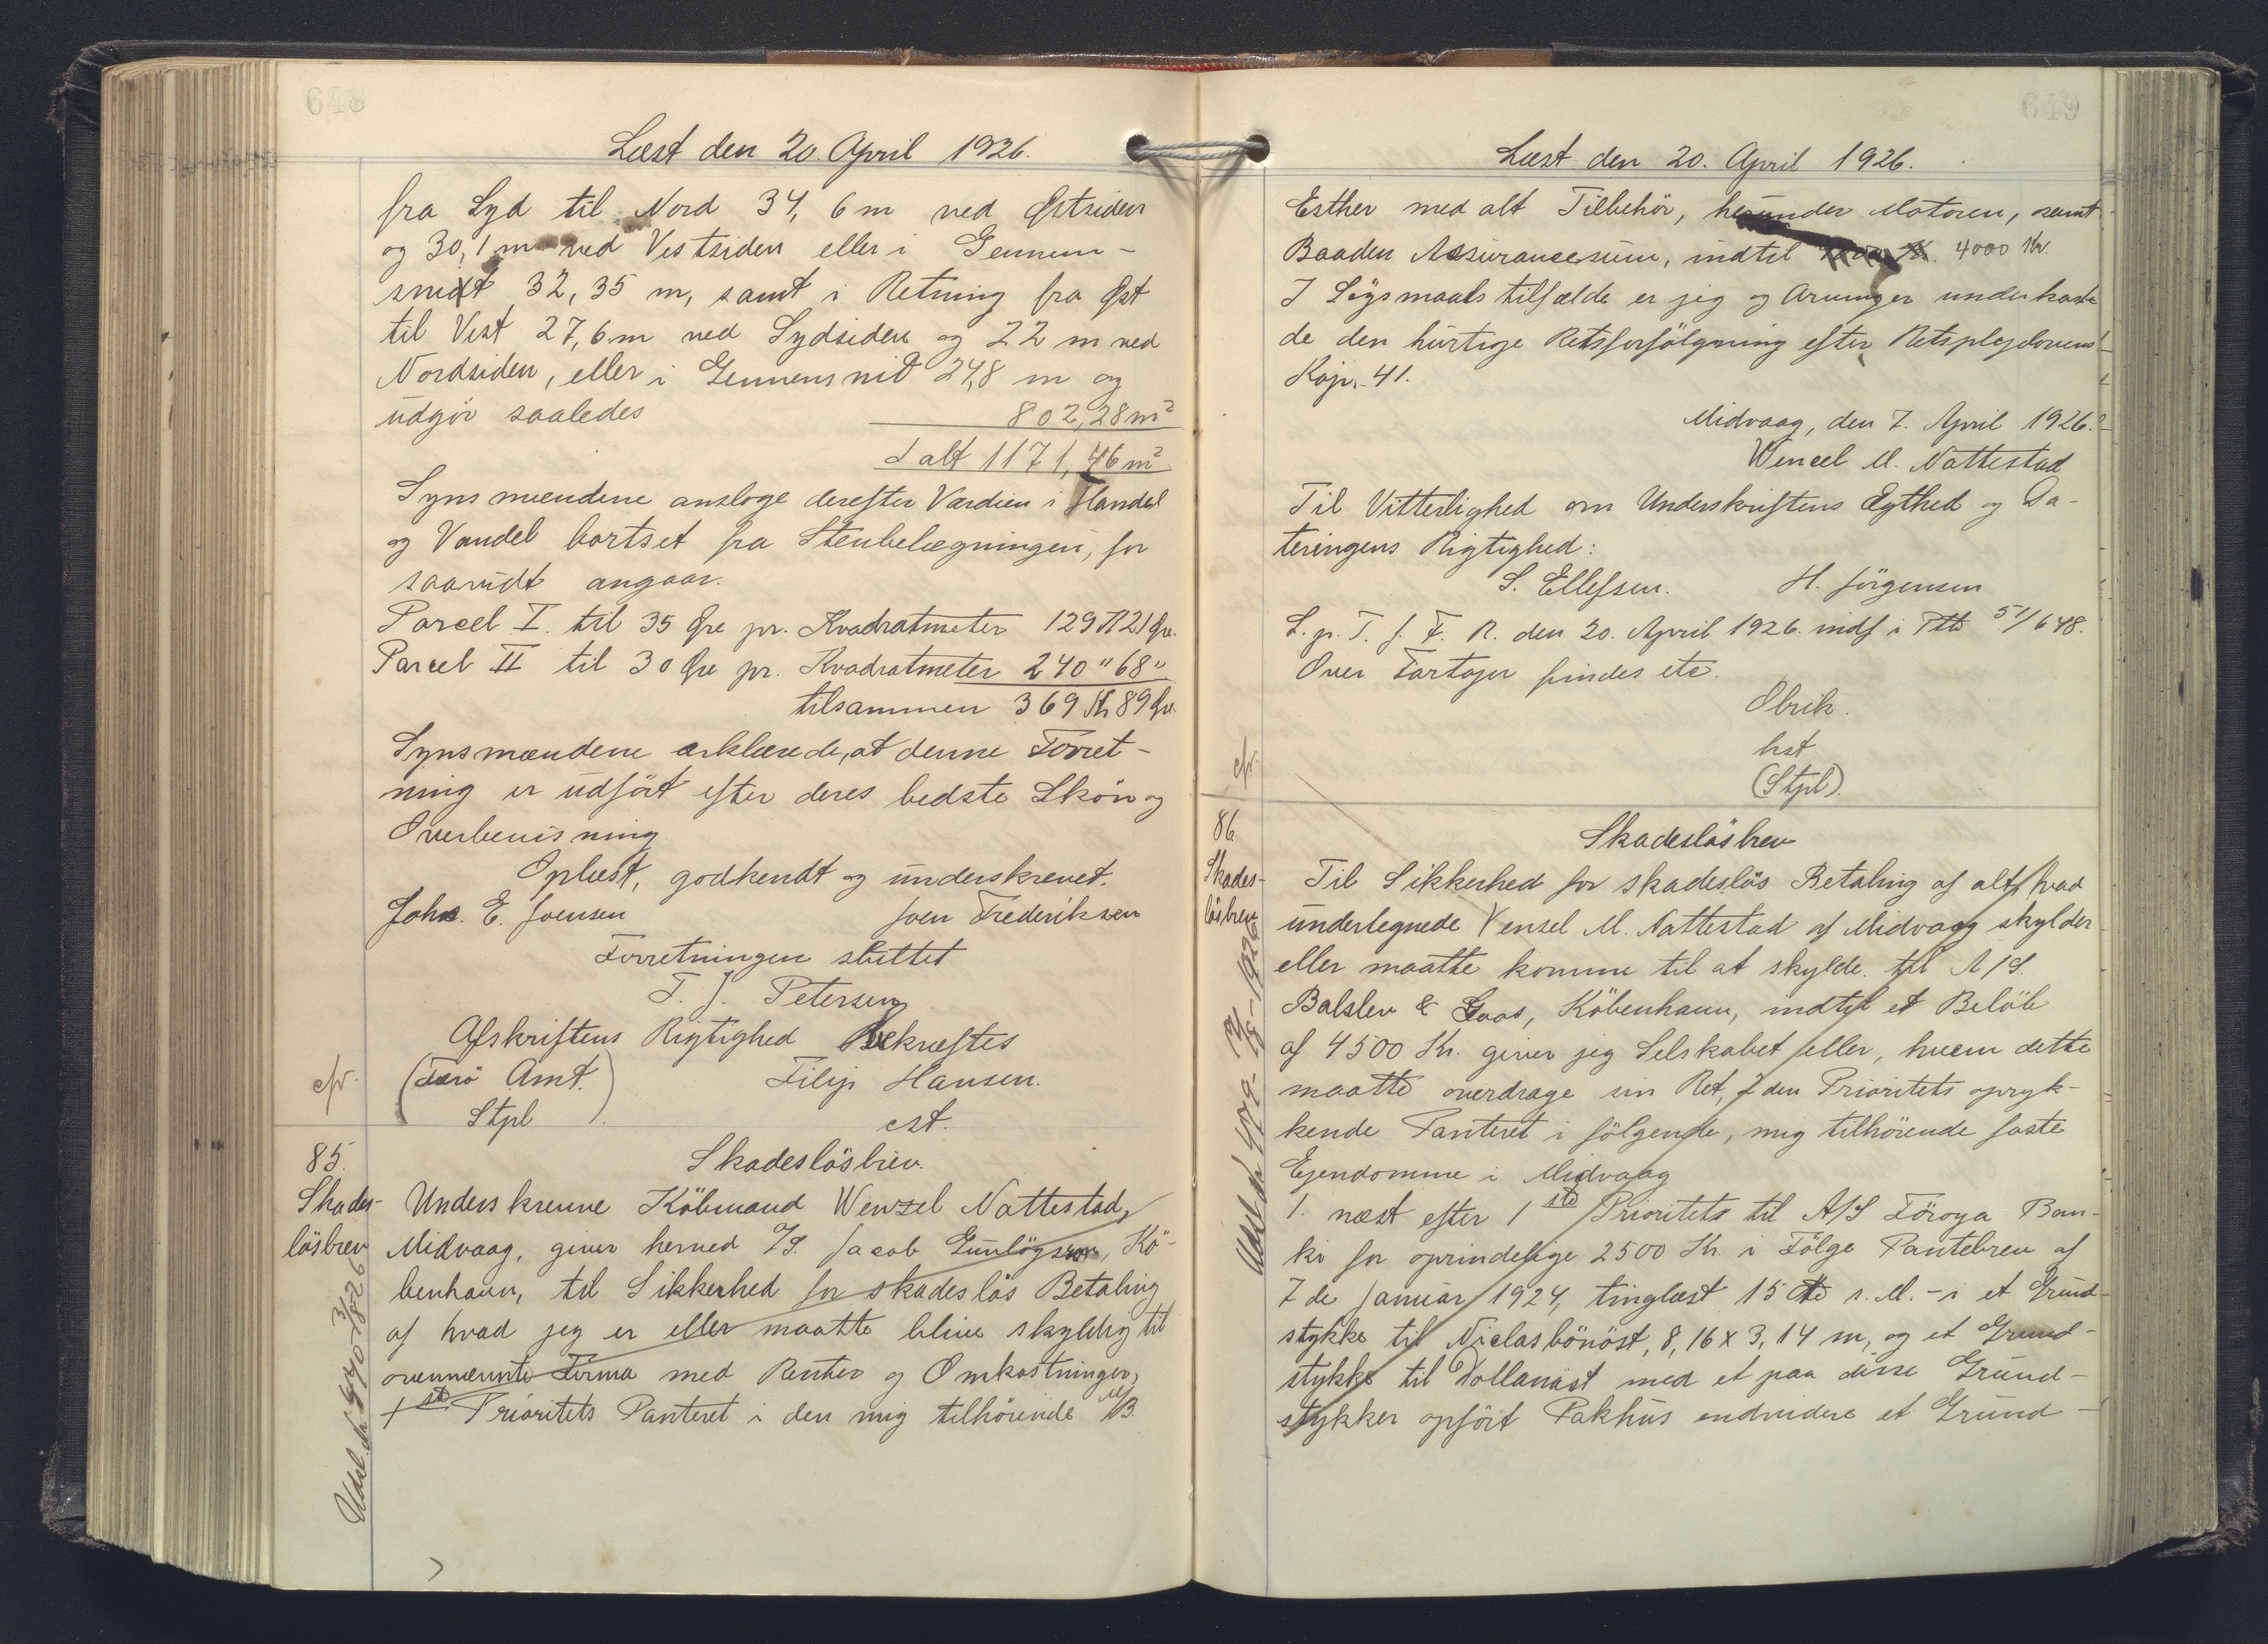 648
Læst den 20. April 1926.
fra Syd til Nord 34,6 m ved Østsiden
og 30,1 m ved Vestsiden eller i Gennem-
snidt 32,35 m, samt i Retning fra Øst
til Vest 27,6 m ved Sydsiden og 22 m ved
Nordsiden, eller i Gennemsnid 24,8 m og
udgör saaledes 802,28 m²
I alt 1171,46 m²
Synsmændene ansloge derefter Værdien i Handel
og Vandel bortset fra Stenbelægningen, for
saavidt angaar.
Parcel I. til 35 Øre pr. Kvadratmeter 129 Kr 21 Øre.
Parcel II til 30 Øre pr. Kvadratmeter 240 " 68 "
tilsammen 369 Kr 89 Øre
Synsmændene erklærede, at denne Forret-
ning er udfört efter deres bedste Skön og
Overbevisning
Oplæst, godkendt og underskrevet.
Johs. E. Joensen Joen Frederiksen
Forretningen sluttet
T. J. Petersen
Afskriftens Rigtighed Bekræftes
cfr. (Færö Amt. Filip Hansen.
Stpl ). cst.
85. Skadeslösbrev.
Skades- Underskrevne Köbmand Wenzel Nattestad,
lösbrev Midvaag, giver herved A/S. Jacob Gunlögsson, Kö-
benhavn, til Sikkerhed for skadeslös Betaling
af hvad jeg er eller maatte blive skyldig til
ovennævnte Firma med Renter og Omkostninger,
1ste Prioritets Panteret i den mig tilhörende M/B.
649
Læst den 20. April 1926.
Esther med alt Tilbehör, herunder Motoren, samt
Baaden Assurancesum, indtil 4000 Kr.
I Sögsmaals tilfælde er jeg og Arvinger underkaste
de den hurtige Retsforfölgning efter Retsplejelovens
Kap. 41.
Midvaag, den 7. April 1926.
Wencel M. Nattestad
Til Vitterlighed om Underskriftens Ægthed og Da-
teringens Rigtighed:
S. Ellefsen. H. Jörgensen
L. p. T. f. F. R. den 20. April 1926. indf i Ttb 51/648.
Over Fartøjer findes etc.
Obrik.
hst
cfr. (Stpl).
86. Skadeslösbrev
Skades- Til Sikkerhed for skadeslös Betaling af alt, hvad
lösbrev undertegnede Venzel M. Nattestad af Midvaag skylder
eller maatte komme til at skylde til A/S.
Balslev & Goos, Köbenhavn, indtil et Belöb
af 4500 Kr. giver jeg Selskabet eller, hvem dette
maatte overdrage sin Ret, 2den Prioritets opryk-
kende Panteret i fölgende, mig tilhörende faste
Ejendomme i Midvaag
1. næst efter 1ste Prioritets til A/S Föroya Ban-
ki for oprindelige 2500 Kr. i Fölge Pantebrev af
7de Januar 1924, tinglæst 15de s. M. - i et Grund-
stykke til Niclasbönöst, 8,16 x 3,14 m, og et Grund-
stykke til Vollanäst med et paa disse Grund-
stykker opfört Pakhus endvidere et Grund-